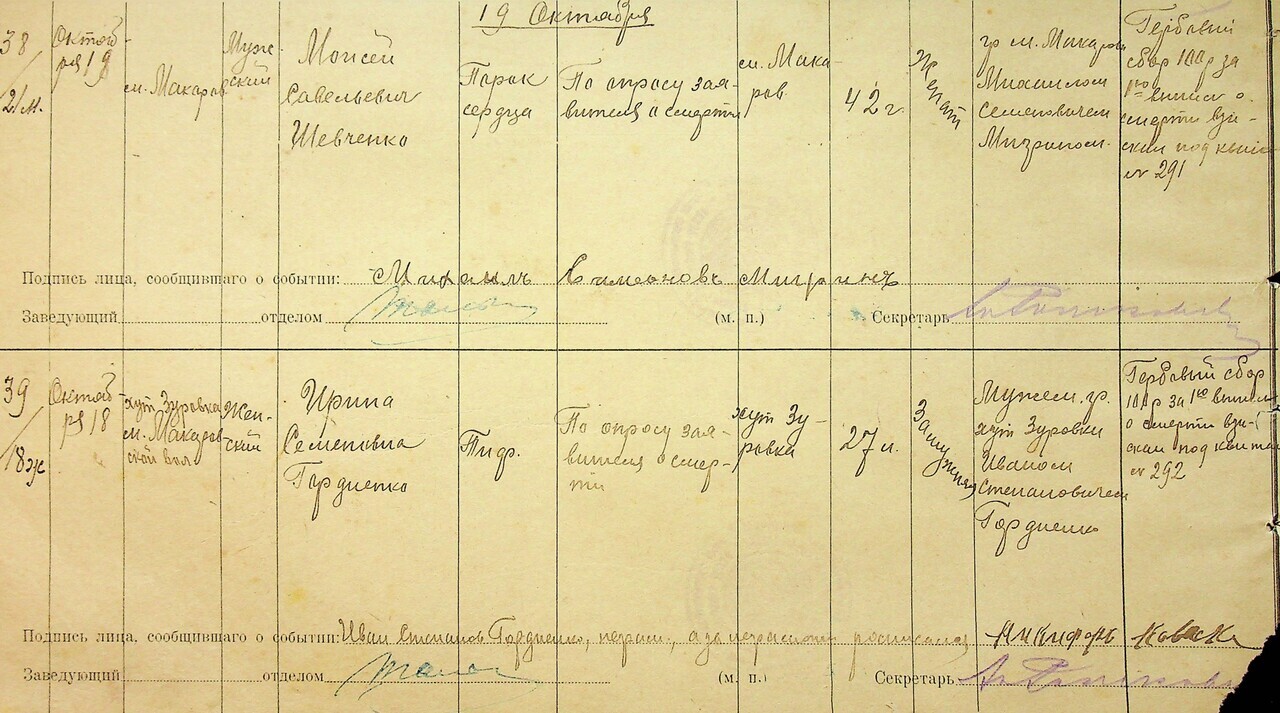 19 Октября
38
21м.
Октяб-
ря 19
м. Макаров
Муж-
ский
Моисей
Савельевич
Шевченко
Порок
сердца
По опросу зая-
вителя о смерти
м. Мака-
ров
42 г.
Женат
гр м. Макаров
Михаилом
Семеновичем
Гербовый
сбор 100 р за
1ую выпись о
смерти взы-
скан под квит
№ 291
Подпись лица, сообщившаго о событии:
Заведующий отделом (м. п.) Секретарь
39
18ж
Октяб
ря 18
хут Зуровка
м. Макаров
ской вол.
Жен-
ский
Ирина
Семеновна
Гордиенко
Тиф.
По опросу зая-
вителя о смер-
ти
хут Зу-
ровка
27 л.
Замужняя
Мужем гр.
хут Зуровки
Иваном
Степановичем
Гордиенко
Гербовый сбор
100 р за 1ую выпись
о смерти взы-
скан под квитан
№ 292
Подпись лица, сообщившаго о событии: Иван Степанов Гордиенко, неграм., а за неграмотн росписался
Заведующий отделом (м. п.) Секретарь